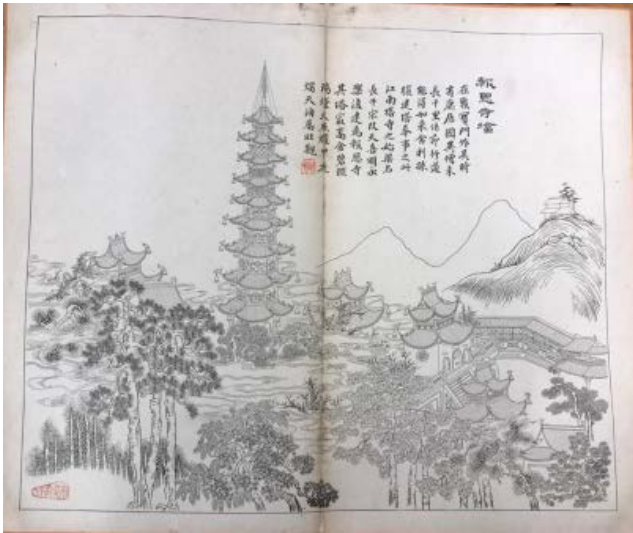 報恩寺塔
在聚寶門外吳時
有康居國異僧來
長干里結茆行道
能得如來舍利孫
權建塔奉事之此
江南塔寺之始梁名
長干宋改天禧明永
樂復建為報恩寺
其塔最高金碧
燈火
燭天洵為壯觀